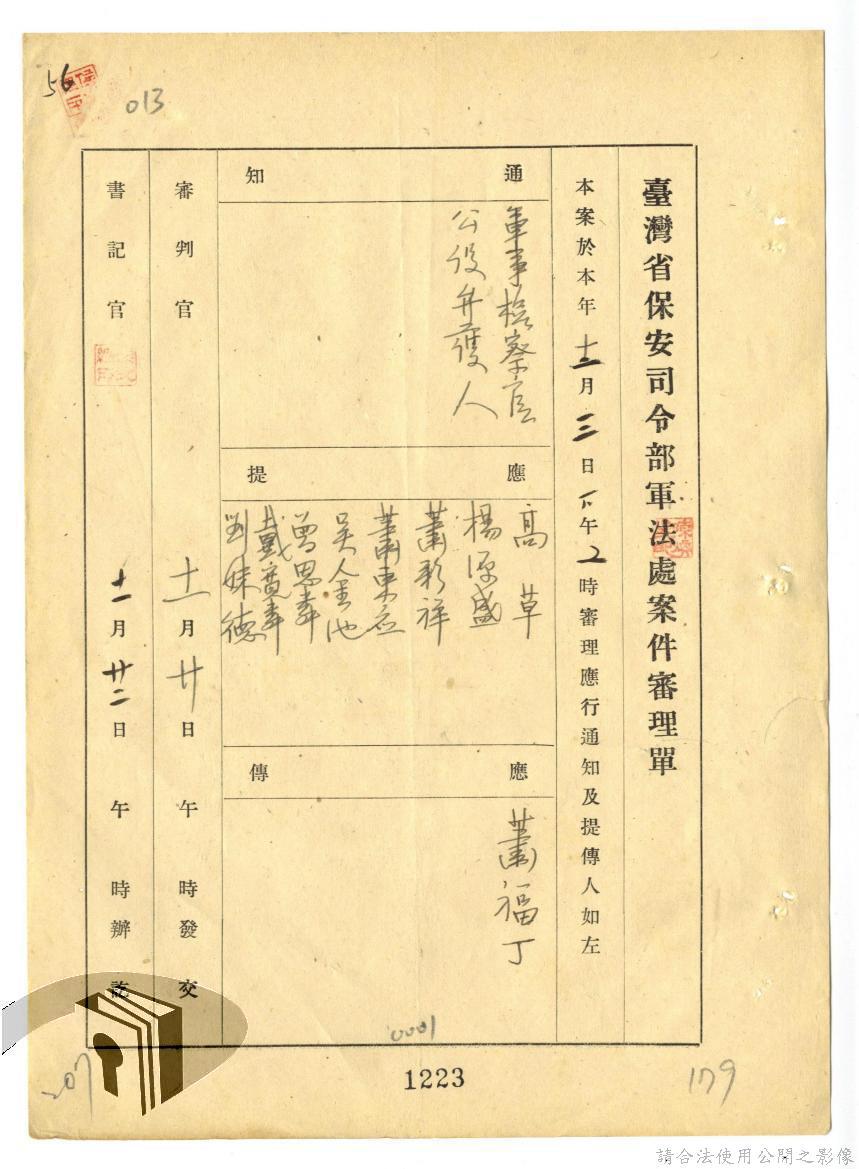 56
013
臺灣省保安司令部軍法處案件審理單
本案於本年十二月三日下午2時審理應行通知及提傳人如左
通知
軍事檢察官
公設弁護人
應提
高草
楊源盛
蕭彩祥
蕭東応
吳金池
曾恩
戴寬
劉妹德
應傳
蕭福丁
審判官 十一月廿日 午 時發交
書記官 十一月廿二日 午 時辦訖
0001
1223
207
179
請合法使用公開之影像